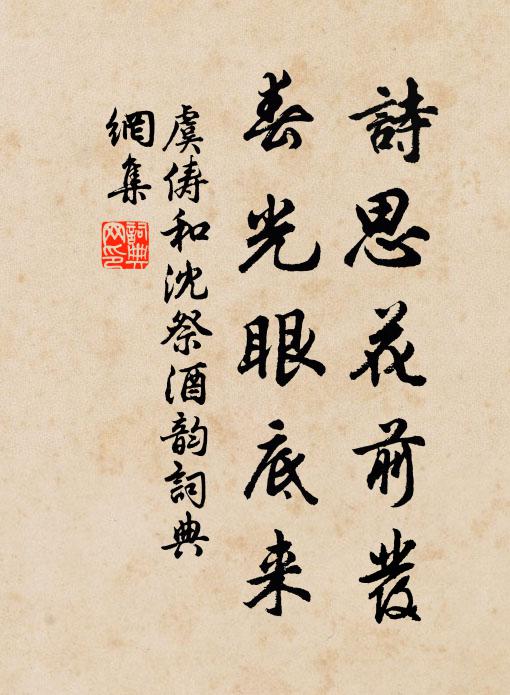 詩思花前發
春光眼底来
虞儔和沈祭酒韵詞典
網集
詞典网印